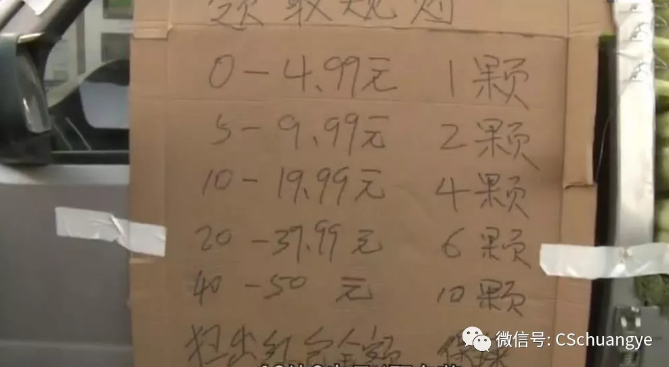 领取规则
0-4.99元 1颗
5-9.99元 2颗
10-19.99元 4颗
20-39.99元 6颗
40-50元 10颗
微信号: CSchuangye